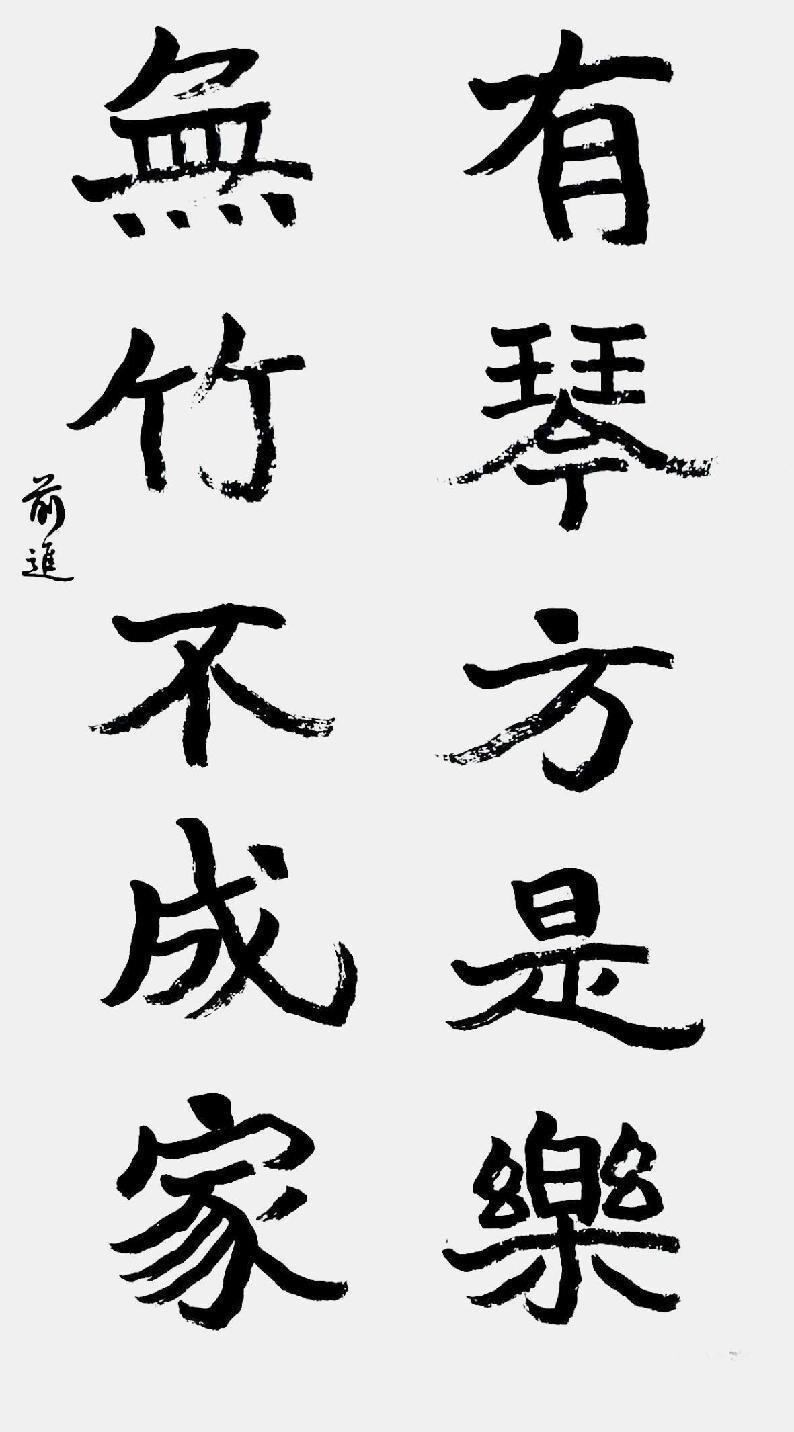 有琴方是樂
無竹不成家
前進